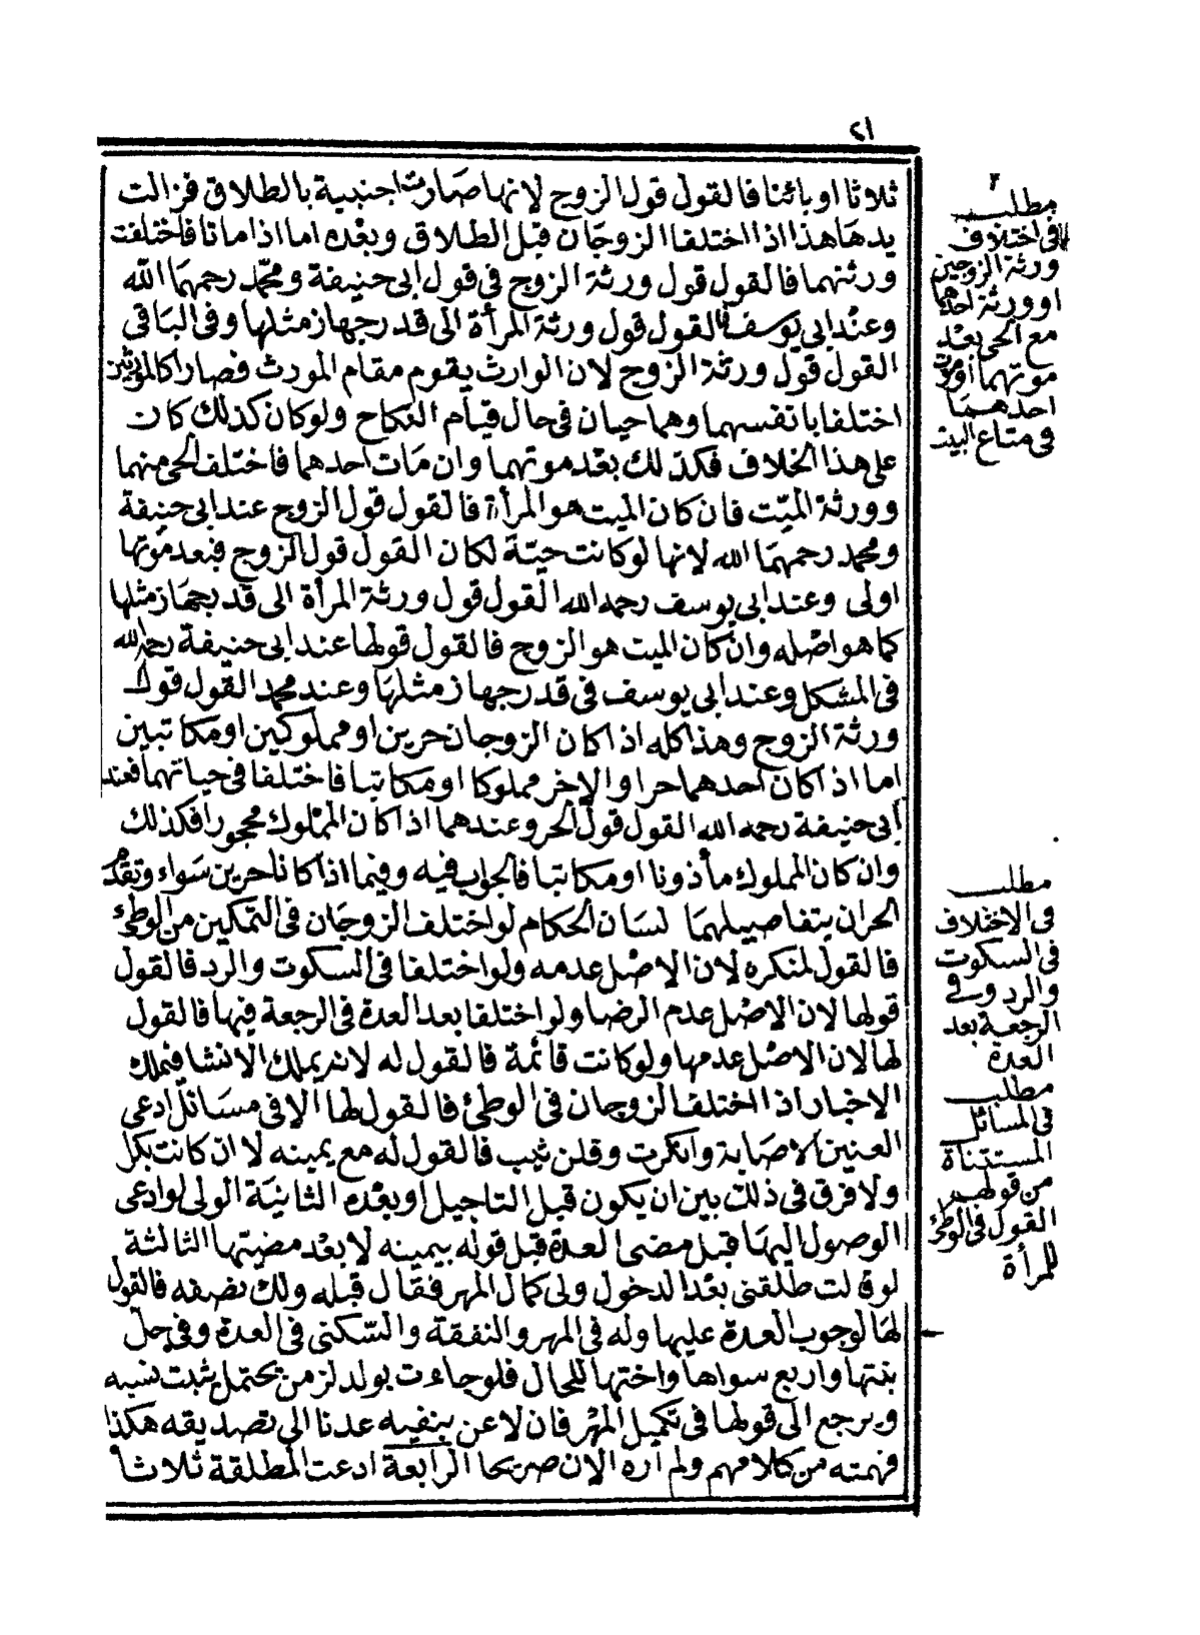 ٢١
ثلاثا او بائنا فالقول قول الزوج لانها صارت اجنبية بالطلاق فزالت
يدها هذا اذا اختلفا الزوجان قبل الطلاق وبعده اما اذا ماتا فاختلفت
ورثتهما فالقول قول ورثة الزوج فى قول ابى حنيفة ومحمد رحمهما الله
وعند ابى يوسف القول قول ورثة المرأة الى قدر جهاز مثلها وفى الباقى
القول قول ورثة الزوج لان الوارث يقوم مقام المورث فصارا كالمورثين
اختلفا بانفسهما وهما حيان فى حال قيام النكاح ولو كان كذلك كان
على هذا الخلاف فكذلك بعد موتهما وان مات احدهما فاختلف الحى منهما
وورثة الميت فان كان الميت هو المرأة فالقول قول الزوج عند ابى حنيفة
ومحمد رحمهما الله لانها لو كانت حيّة لكان القول قول الزوج فبعد موتها
اولى وعند ابى يوسف رحمه الله القول قول ورثة المرأة الى قدر جهاز مثلها
كما هو اصله وان كان الميت هو الزوج فالقول قولها عند ابى حنيفة رحمه الله
فى المشكل وعند ابى يوسف فى قدر جهاز مثلها وعند محمد القول قول
ورثة الزوج وهذا كله اذا كان الزوجان حرين او مملوكين او مكاتبين
اما اذا كان احدهما حرا والاخر مملوكا او مكاتبا فاختلفا فى حياتهما فعند
ابى حنيفة رحمه الله القول قول الحر وعندهما اذا كان المملوك محجورا فكذلك
وان كان المملوك مأذونا او مكاتبا فالجواب فيه وفيما اذا كانا حرين سواء وتقدم
الحران بتفاصيلهما لسان الحكام لو اختلف الزوجان فى التمكين من الوطئ
فالقول لمنكره لان الاصل عدمه ولو اختلفا فى السكوت والرد فالقول
قولها لان الاصل عدم الرضا ولو اختلفا بعد العدة فى الرجعة فيها فالقول
لها لان الاصل عدمها ولو كانت قائمة فالقول له لانه يملك الانشا فيملك
الاخبار اذا اختلف الزوجان فى الوطئ فالقول لها الا فى مسائل ادعى
العنين الاصابة وانكرت وقلن ثيب فالقول له مع يمينه لا ان كانت بكر
ولا فرق فى ذلك بين ان يكون قبل التاجيل او بعده الثانية المولى لو ادعى
الوصول اليها قبل مضى العدة قبل قوله بيمينه لا بعد مضيتها الثالثة
لو قالت طلقنى بعد الدخول ولى كمال المهر فقال قبله ولك نصفه فالقول
لها لوجوب العدة عليها وله فى المهر والنفقة والسكنى فى العدة وفى حل
بنتها واربع سواها واختها للحال فلو جاءت بولد لزمن يحتمل يثبت نسبه
ويرجع الى قولها فى تكميل المهر فان لاعن بنفيه عدنا الى تصديقه هكذا
فهمته من كلامهم ولم اره الان صريحا الرابعة ادعت المطلقة ثلاثا
مطلب
فى اختلاف
ورثة الزوجين
او ورثة احدهما
مع الحى بعد
موتهما او موت
احدهما
فى متاع البيت
مطلب
فى الاختلاف
فى السكوت
والرد وفى
الرجعة بعد
العدة
مطلب
فى المسائل
المستثناة
من قولهم
القول فى الوطئ
للمرأة